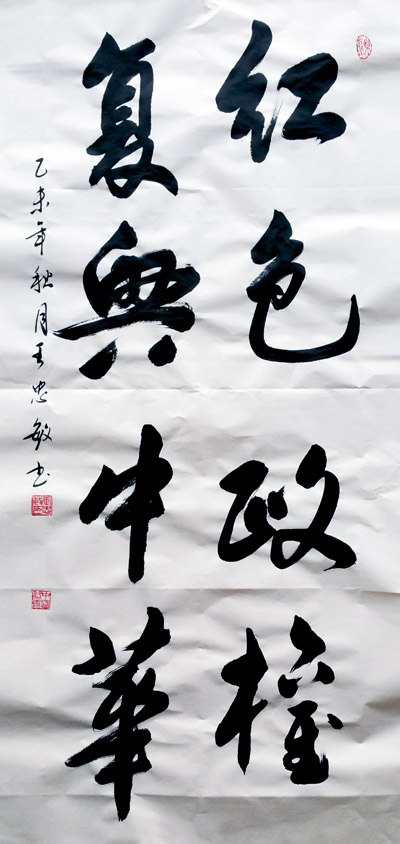 红色政權
复興中華
乙未年秋月王忠敏书